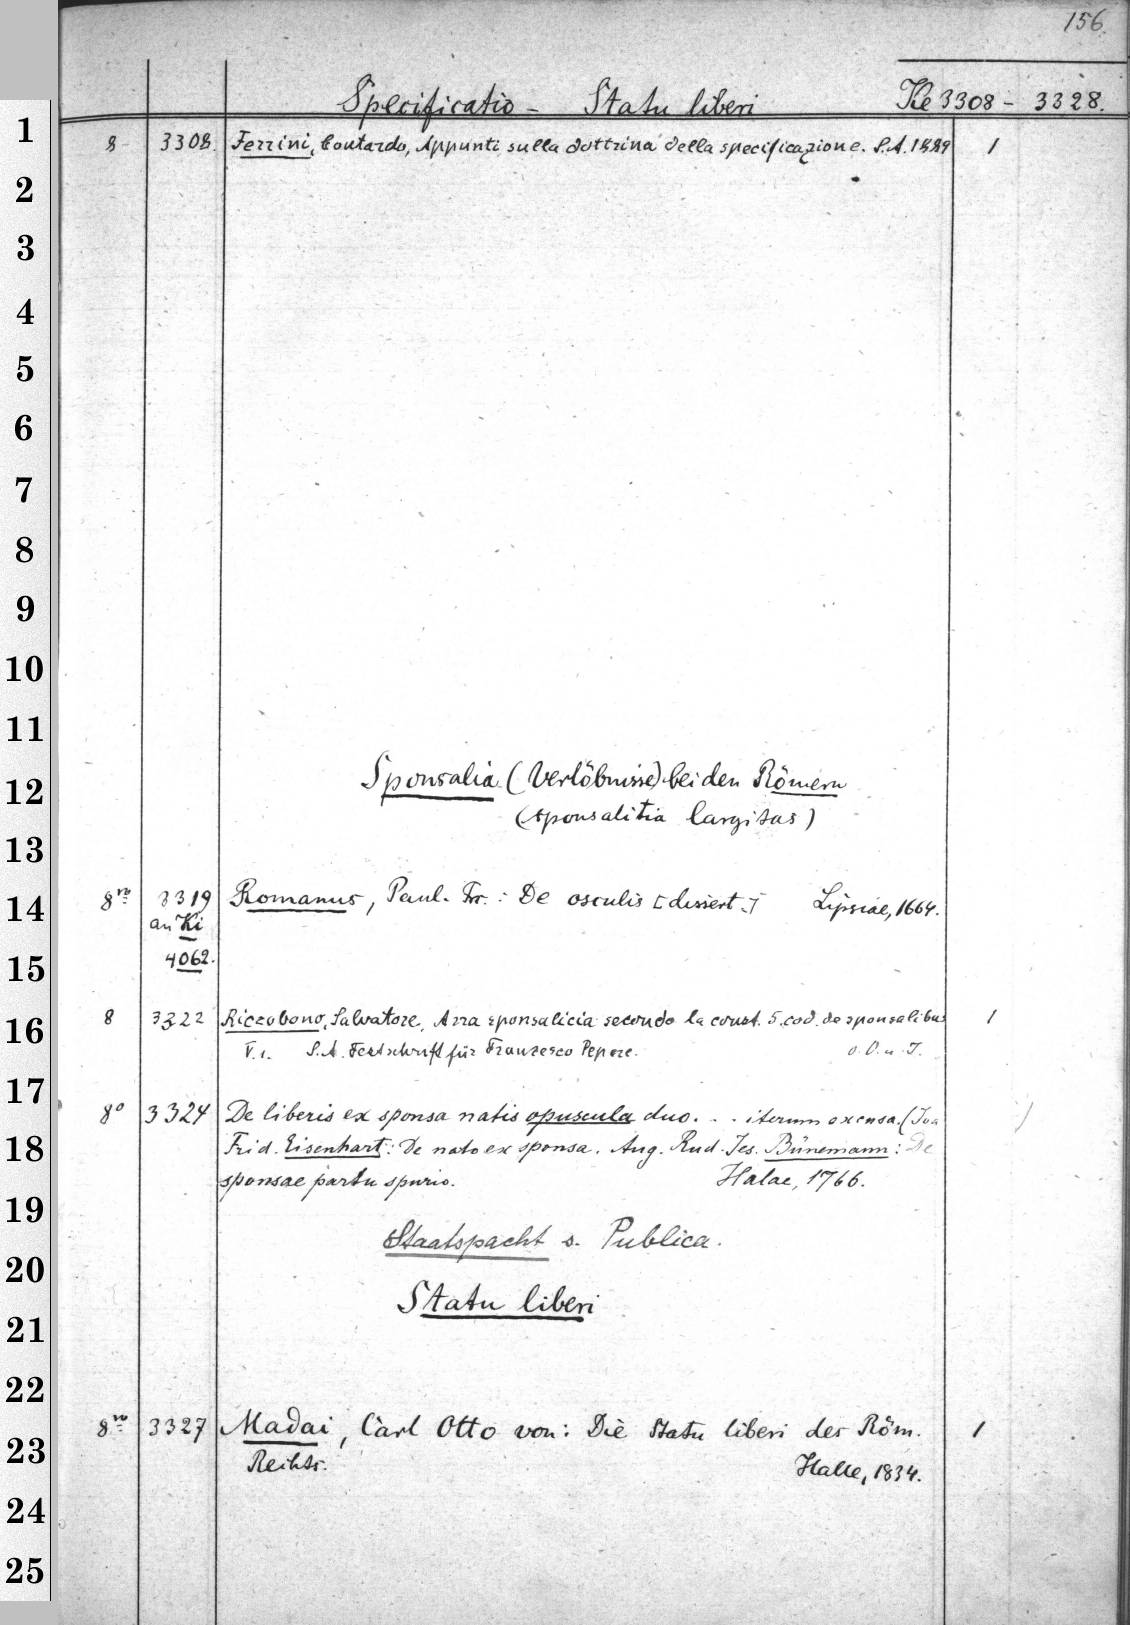 156.
Specificatio - Statu liberi Ke 3308 - 3328.
1
8 3308. Ferrini, Contardo, Appunti sulla dottrina della specificazione. S.A. 1889 1
2
3
4
5
6
7
8
9
10
11
Sponsalia (Verlöbnisse) bei den Römern
12
(sponsalitia largitas)
13
8vo 3319 Romanus, Paul. Fr.: De osculis [dissert.] Lipsiae, 1664.
14
an Ki
4062.
15
8 3322 Riccobono, Salvatore, Arra sponsalicia secondo la const. 5. cod. de sponsalibus 1
16
V. 1. S.A. Festschrift für Francesco Pepere. o. O. u. J.
17
8° 3324 De liberis ex sponsa natis opuscula duo. . . iterum excusa. (Joa
18
Frid. Eisenhart: De nato ex sponsa. Aug. Rud. Jes. Bünemann: De
sponsae partu spurio. Halae, 1766.
19
Staatspacht s. Publica.
20
Statu liberi
21
22
8vo 3327 Madai, Carl Otto von: Die Statu liberi des Röm. 1
23
Rechts. Halle, 1834.
24
25